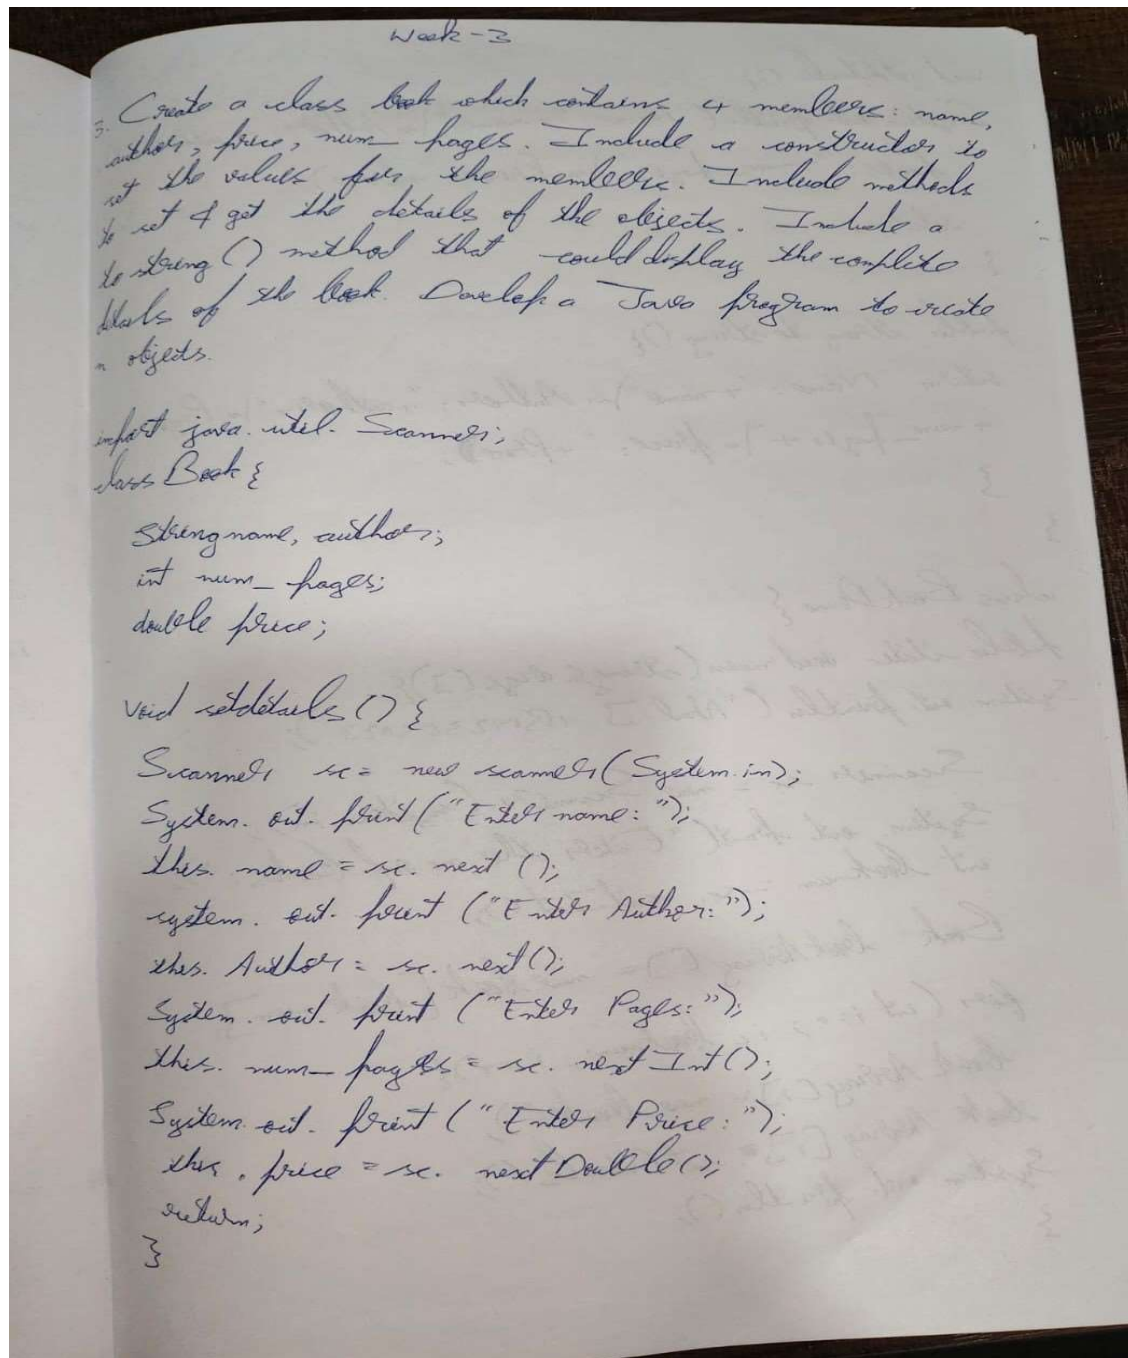 Week-3
3. Create a class book which contains 4 members: name,
author, price, num_pages. Include a constructor to
set the values for the members. Include methods
to set & get the details of the objects. Include a
to string () method that could display the complete
details of the book. Develop a Java program to create
n objects.
import java. util. Scanner;
class Book {
String name, author;
int num_pages;
double price;
Void setdetails () {
Scanner sc= new scanner (System.in);
System. out. print ("Enter name: ");
this. name = sc. next ();
system. out. print ("Enter Author: ");
this. Author = sc. next();
System. out. print ("Enter Pages: ");
this. num_pages = sc. nextInt();
System. out. print ("Enter Price: ");
this. price = sc. nextDouble();
return;
}